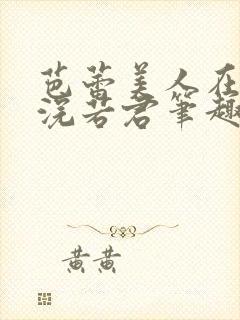 芭蕾美人在
浣若君笔趣
黄黄